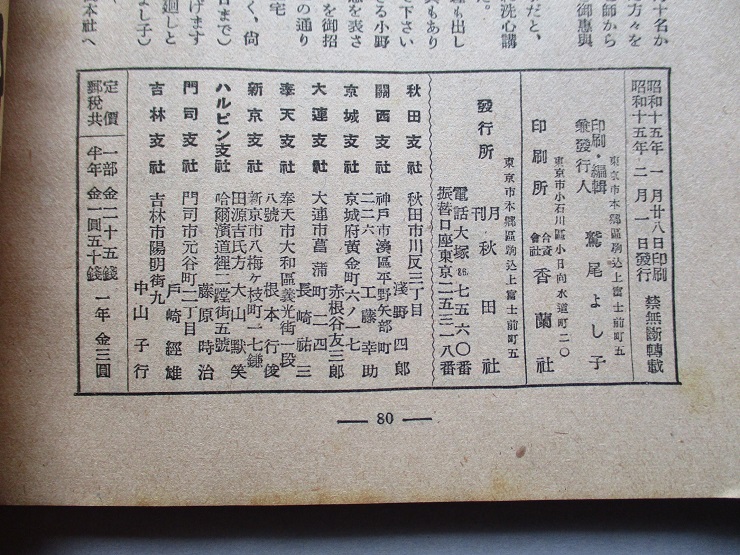 十名か
方々を
師から
御惠與
だと、
洗心講
す。
運も出し
員もあり
下さい
きる小野
認を表さ
を御招
の通り
宅
く、尙
日まで）
げます
廻しと
よし子）
本社へ
昭和十五年 一月廿八日印刷
昭和十五年 二月 一日發行
禁無斷轉載
東京市本鄕區駒込上富士前町五
印刷・編輯
兼發行人 鷲尾よし子
東京市小石川區小日向水道町二〇
印刷所 合資會社 香蘭社
東京市本鄕區駒込上富士前町五
發行所 月刊 秋田社
電話大塚(86)七五六〇番
振替口座東京二五三一八番
秋田支社 秋田市川反三丁目
淺野四郎
關西支社 神戶市湊區平野矢部町
二二六 工藤幸助
京城支社 京城府黃金町六ノ一七
赤根谷友三郎
大連支社 大連市菖蒲町二四
長崎祐三
奉天支社 奉天市大和區義光街一段
八號 根本行俊
新京支社 新京市八梅ヶ枝町一七鎌
田源吉氏方 大山默笑
ハルビン支社 哈爾濱道裡二蹚街五號
藤原時治
門司支社 門司市元谷町二丁目
戶崎經雄
吉林支社 吉林市陽明街九
中山子行
定價 一部 金二十五錢
郵稅共 半年 金一圓五十錢 一年 金三圓
— 80 —